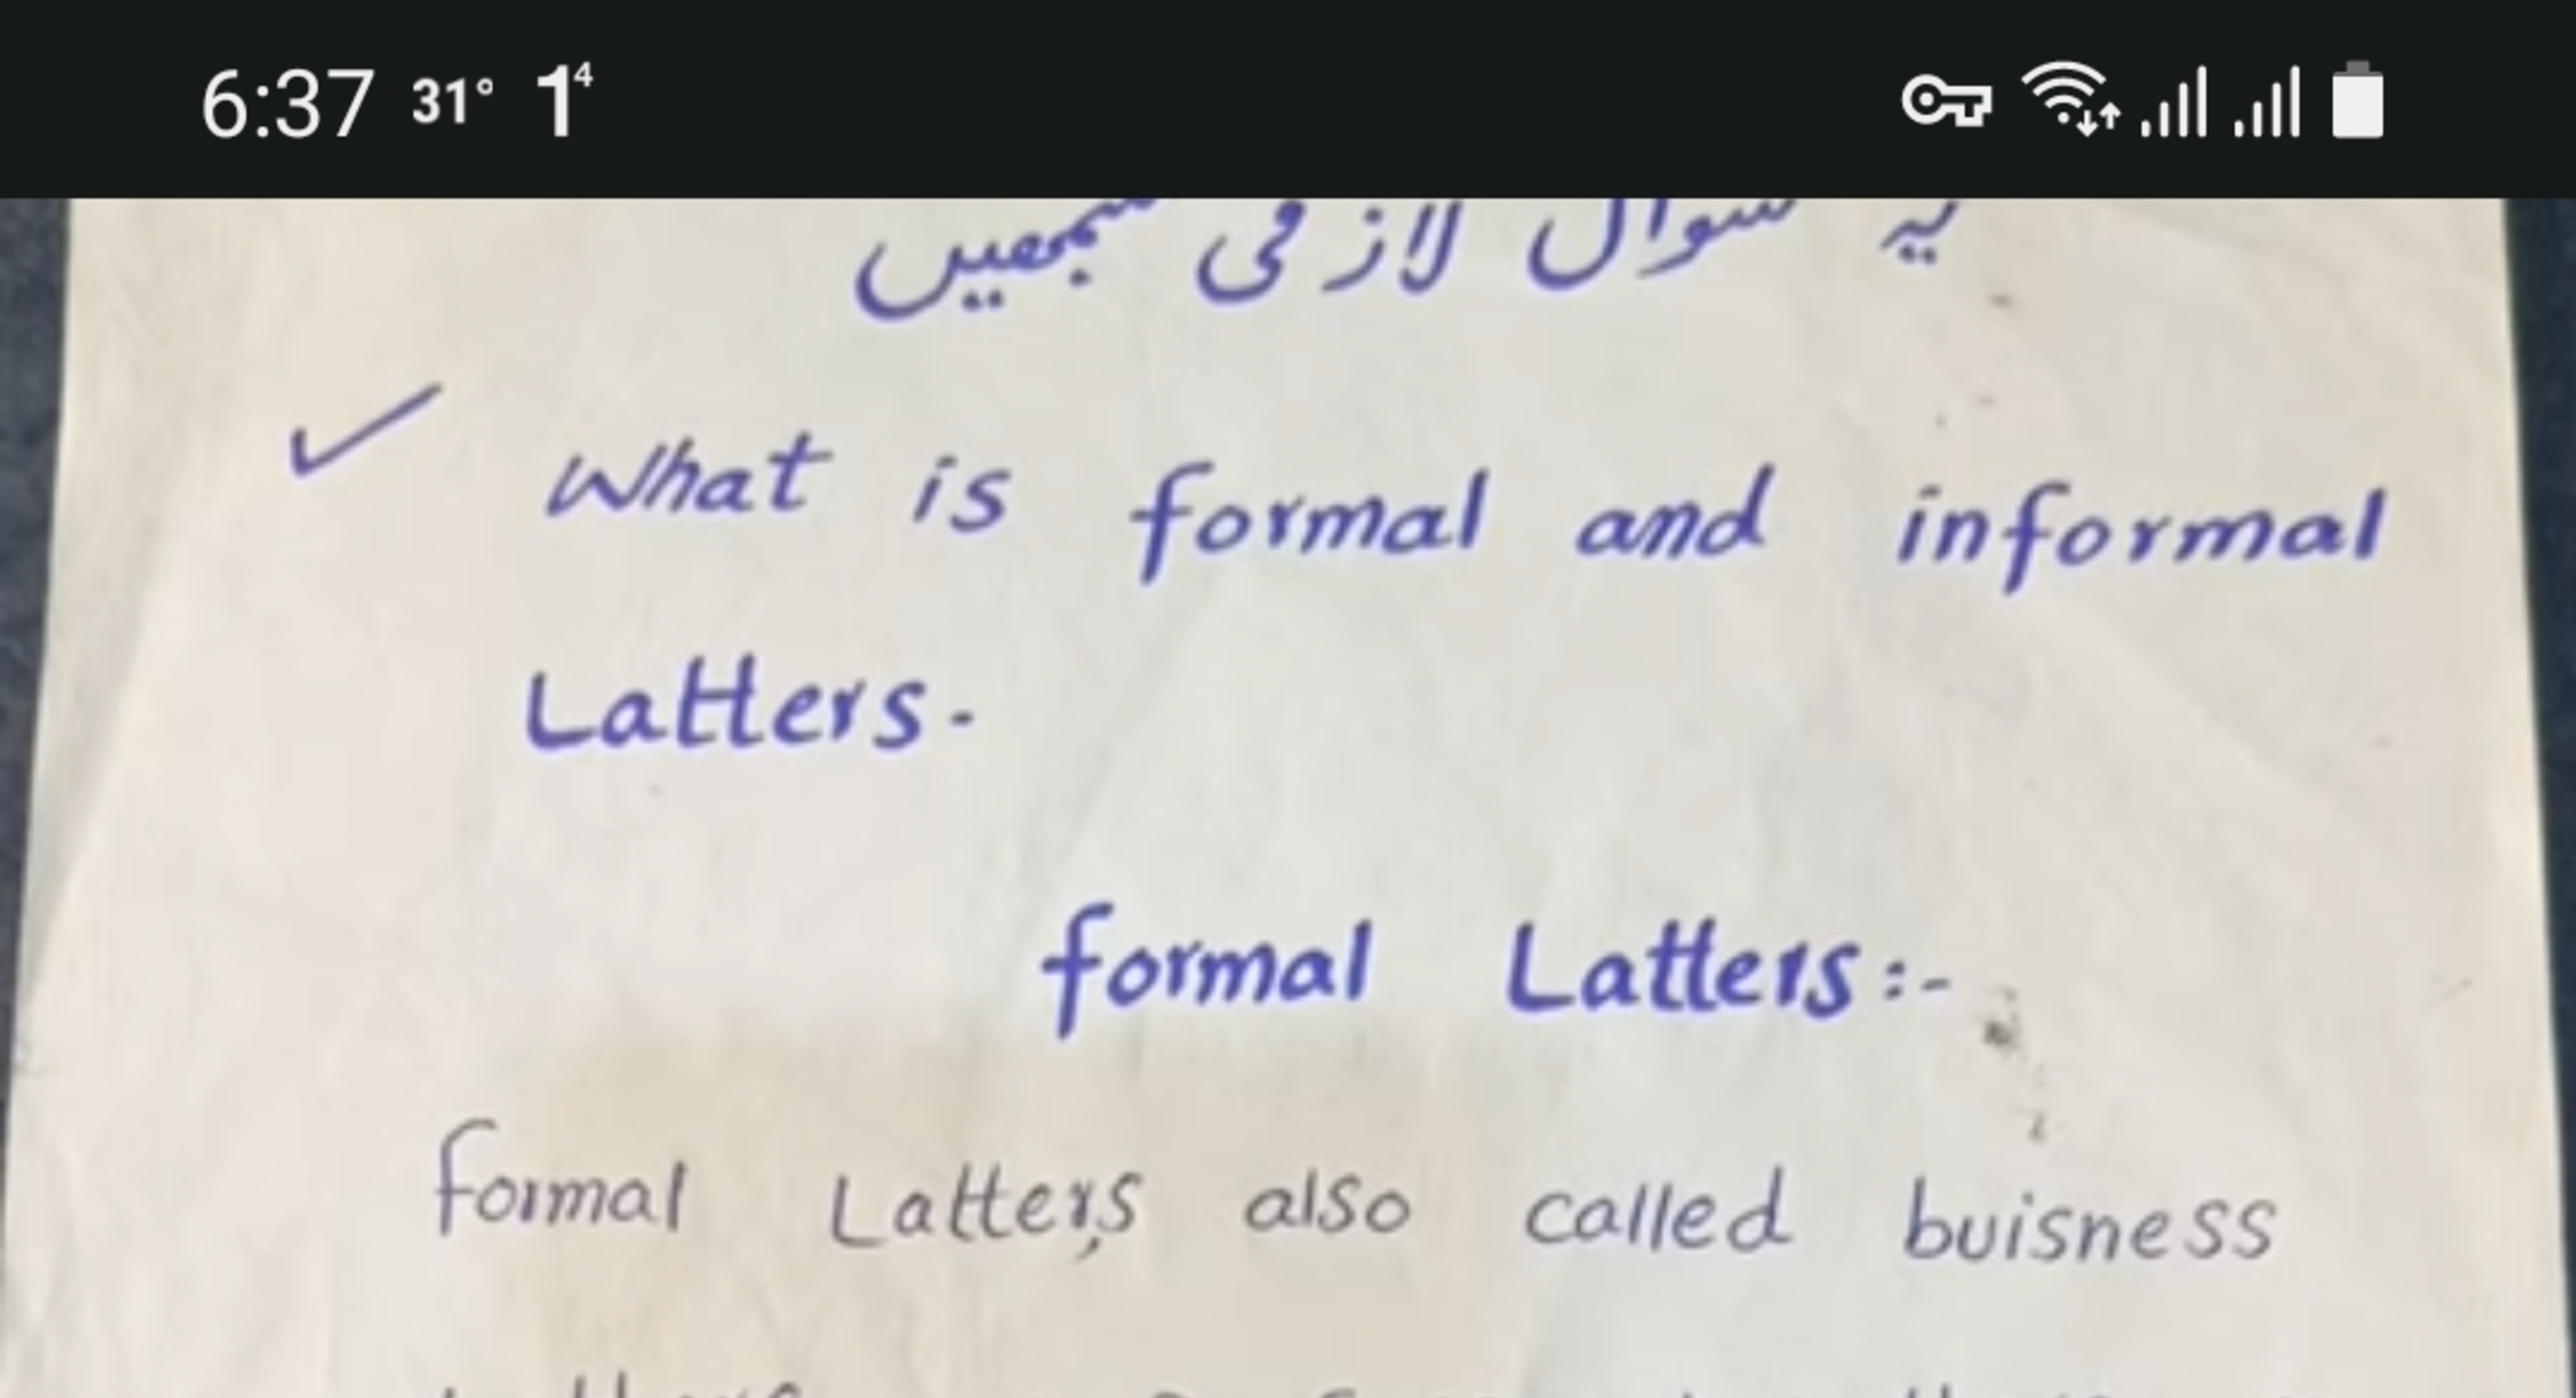 6:37 31° 1⁴
یہ سوال لازمی سمجھیں
What is formal and informal
Latters.
formal Latters:-
formal Latters also called buisness